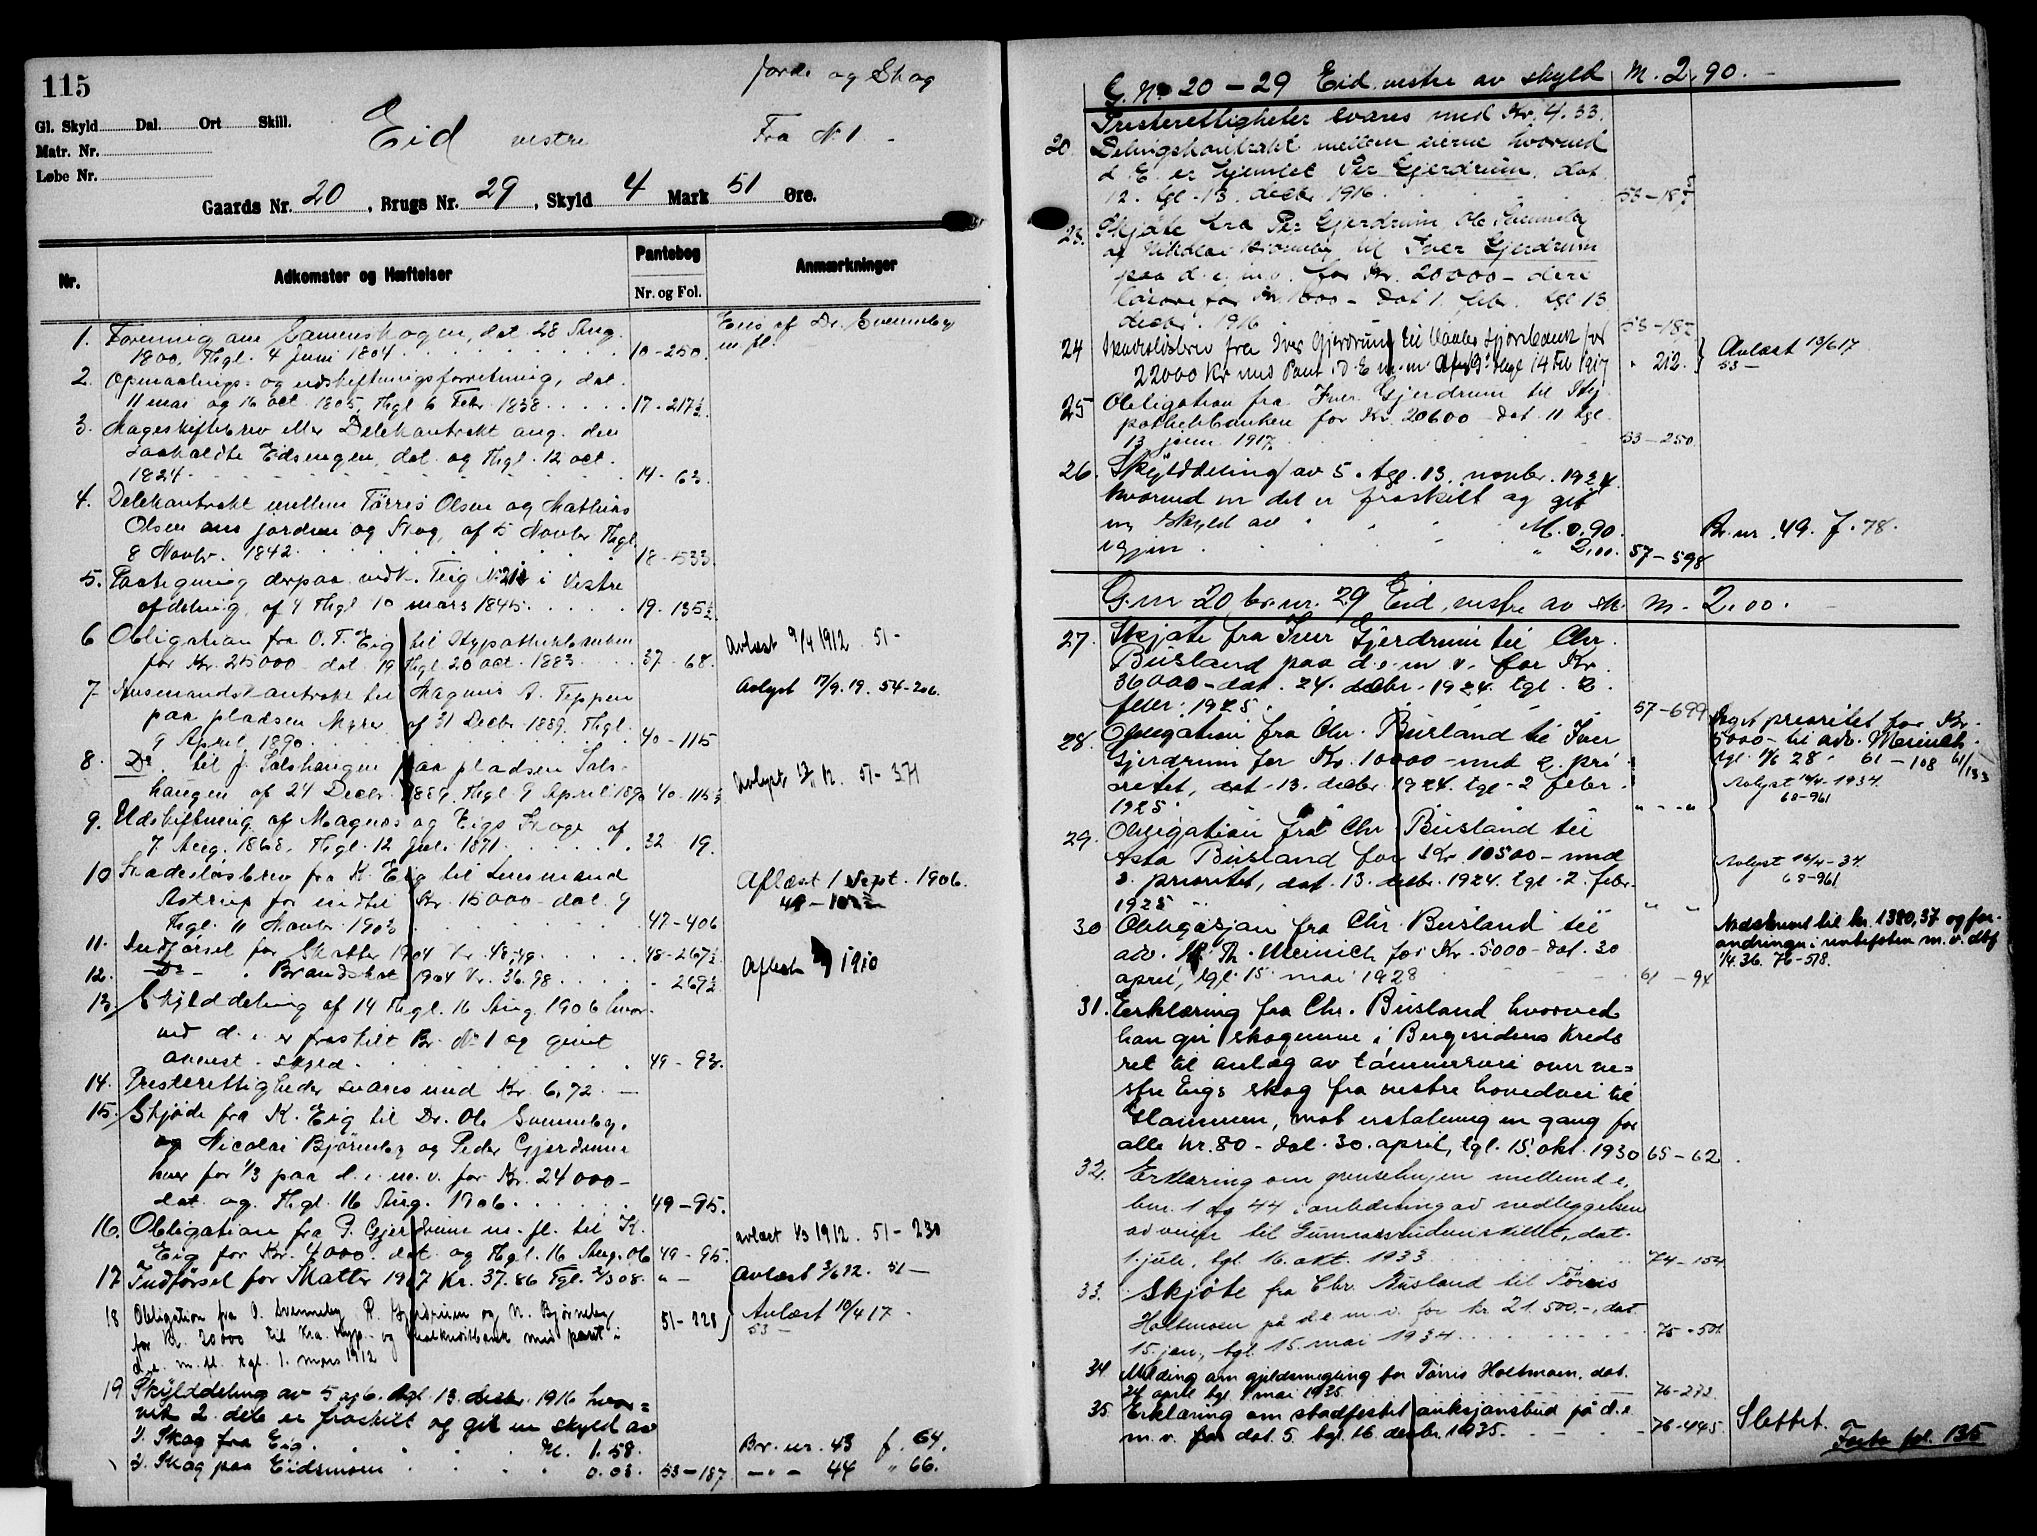 115
jorde og Skog
Gl. Skyld Dal. Ort Skill.
Matr. Nr.
Løbe Nr.
Eid vestre
Fra No 1.
Gaards Nr. 20, Brugs Nr. 29, Skyld 4 Mark 51 Øre.
Nr.
Adkomster og Hæftelser
Pantebog
Nr. og Fol.
Anmærkninger
Eies af Dr. Svenneby
m fl.
1. Forening om Lamenskogen, dat. 28 Aug.
1800, Thgl. 4 Juni 1804 10-250.
2. Opmaalings- og udskiftningsforretning, dat.
11 mai og 16 oct. 1805, Thgl 6 Febr. 1838 17-217½.
3. Mageskiftebrev eller Delekontrakt ang. den
saakaldte Eidsengen, dat. og Thgl. 12 oct.
1824. 14-63.
4. Delekontrakt mellem Tørres Olsen og Mathias
Olsen om jorden og Skog, af 5 Novbr Thgl
8 Novbr. 1842. 18-533.
5. Paategning derpaa vedk. Teig No i Vestre
afdeling, af 4 Thgl 10 mars 1845. 19. 135½
6 Obligation fra O. T. Eig til Hypothekbanken
for Kr. 215000 dat. 19 Thgl 20 oct. 1883 37-68. Avlæst 9/4 1912 51-
7 Husmandskontrakt til Magnus A. Teppen
paa pladsen Myrer af 31 Decbr 1889, Thgl.
9 April 1890. 40-115 Avlyst 17/9.19. 54-206.
8. Do til J. Solshaugen paa pladsen Sols-
haugen af 24 Decbr. 1889. Thgl 9 April 1890 40-115½ Avlyst 12. 51-371
9. Udskiftning af Magnos og Eigs Skoge af
7 Aug. 1868. Thgl. 12 Juli 1871. 22 19.
10 Skadesløsbrev fra K. Eig til Lensmand
Astrup for indtil Kr. 15000 dat. 9
Thgl. 11 Novbr. 1903 47-406 Aflæst 1 Sept. 1906.
11. Indførsel for Skatter 1904 Kr. 48,49. 48-267½
12. Do - Brandskat 1904 Kr. 36.98 - 269½ Aflæst 1910
13. Skylddeling af 14 Thgl. 16 Aug. 1906 hvor-
ved d. e. er fraskilt Br. No 1 og givet
anvist skyld. 49-93.
14. Presterettigheder svares med Kr. 6,72.
15. Skjøde fra K. Eig til Dr. Ole Svenneby,
og Nicolai Bjørneby og Peder Gjerdrum
hver for 1/3 paa d. e. m. v. for Kr. 24000-
dat. og Thgl. 16 Aug. 1906. 49-95.
16. Obligation fra P. Gjerdrum m. fl. til K.
Eig for Kr. 4000. dat. og Thgl. 16 Aug. 06 49-95. avlæst 1/3 1912. 51-230
17 Indførsel for Skatter 1907 Kr. 37.86 Tgl. 2/3 08. "- Avlæst 3/6 22. 51-
18 Obligation fra O. Svenneby P. Gjerdrum og N. Bjørneby
for Kr. 20000 til Kra. Hyp.- og Realkreditbank med pant i
d. e. m. fl. tgl. 1. mars 1912 51-228 Avlæst 10/4 17.
53-
19. Skylddeling av 5 og 6. tgl. 13. decbr. 1916 hvor-
ved 2 dele er fraskilt og git en skyld av
1. Skog fra Eig. M. 1.58. Br. nr. 43 f. 64.
2. Skog paa Eidsmoen " 0.03. 53-187. -"- 44 " 66.
G. No 20-29 Eid vestre av skyld M. 2,90.
Presterettigheter svares med Kr. 4.33.
20. Delingskontrakt mellem eierne hvorved
d. E. er hjemlet Per Gjerdrum. dat.
12. tgl. 13. decbr 1916. 53-187
23. Skjøte fra Per Gjerdrum, Ole Svenneby
og Nikolai Bjørneby til Iver Gjerdrum
paa d. e. m. v. for Kr. 20000- dere
løsøre for Kr. 1000- dat 1. febr. tgl 13
decbr. 1916 53-187
24 Skadesløsbrev fra Iver Gjerdrum til Vaaler Sparebank for
22000 kr med Pant i D. E m. m. tgl 14 feb 1917 " 212. Avlæst 13/6 17
53-
25 Obligation fra Iver Gjerdrum til Hy-
pothekbanken for Kr. 20600 dat. 11 tgl.
13 juni 1917 53-250
26. Skylddeling av 5. tgl. 13. novbr. 1924.
hvorved en del er fraskilt og git
en skyld av M. 0.90. Br. nr. 49. f. 78.
igjen " 2,00. 57-598
G. nr 20 br. nr. 29 Eid, vestre av sk. M. 2.00.
27. Skjøte fra Iver Gjerdrum til Chr.
Busland paa d. e. m v. for Kr.
36000- dat. 24. decbr. 1924. tgl. 2.
febr. 1925. 57-699
28. Obligation fra Chr. Busland til Iver
Gjerdrum for Kr. 10000- med 2. pri-
oritet, dat. 13. decbr. 1924. tgl. 2 febr.
1925. "-"
Veget prioritet for Kr.
5000- til adv. Meinich
tgl. 1/6 28 61-108 61/133
Avlyst 14/4-1934.
68-961
29. Obligation fra Chr Busland til
Asta Busland for Kr. 10500- med
3. prioritet, dat. 13. decbr. 1924. tgl. 2. febr.
1925 " " Avlyst 14/4-34.
68-961
30 Obligasjon fra Chr. Busland til
adv. Th. Meinich for Kr. 5000- dat. 30
april, tgl. 15 mai 1928 61-94
Nedskrevet til kr. 1380,37 og for-
andringer i rentefoten m. v. dtf
1/4.36. 76-518.
31. Erklæring fra Chr. Busland hvorved
han gir skogeierne i Bergesidens Kreds
ret til anlæg av tømmervei over ve-
stre Eigs skog fra vestre hovedvei til
Glommen, mot erstatning en gang for
alle kr. 80- dat. 30. april, tgl. 15. okt. 1930 65-62.
32. Erklæring om grenselinjen mellem d. e.
bnr. 1 og 44 i anledning av nedleggelsen
av veien til Gunnarsrudsundstedet, dat.
1. juli, tgl. 16. okt. 1933 74-154
33. Skjøte fra Chr. Busland til Tørris
Holtmoen på d. e m. v. for kr 21.500.-, dat.
15. jan, tgl. 15. mai 1934 75-501.
34. Melding om gjeldsmegling for Tørris Holtmoen, dat.
24 april tgl. 1 mai 1935. 76-273.
35. Erklæring om stadfestet auksjonsbud på d. e
m. v. dat. 5. tgl. 16. decbr. 1935. 76-445. Slettet.
Forts. fol. 135